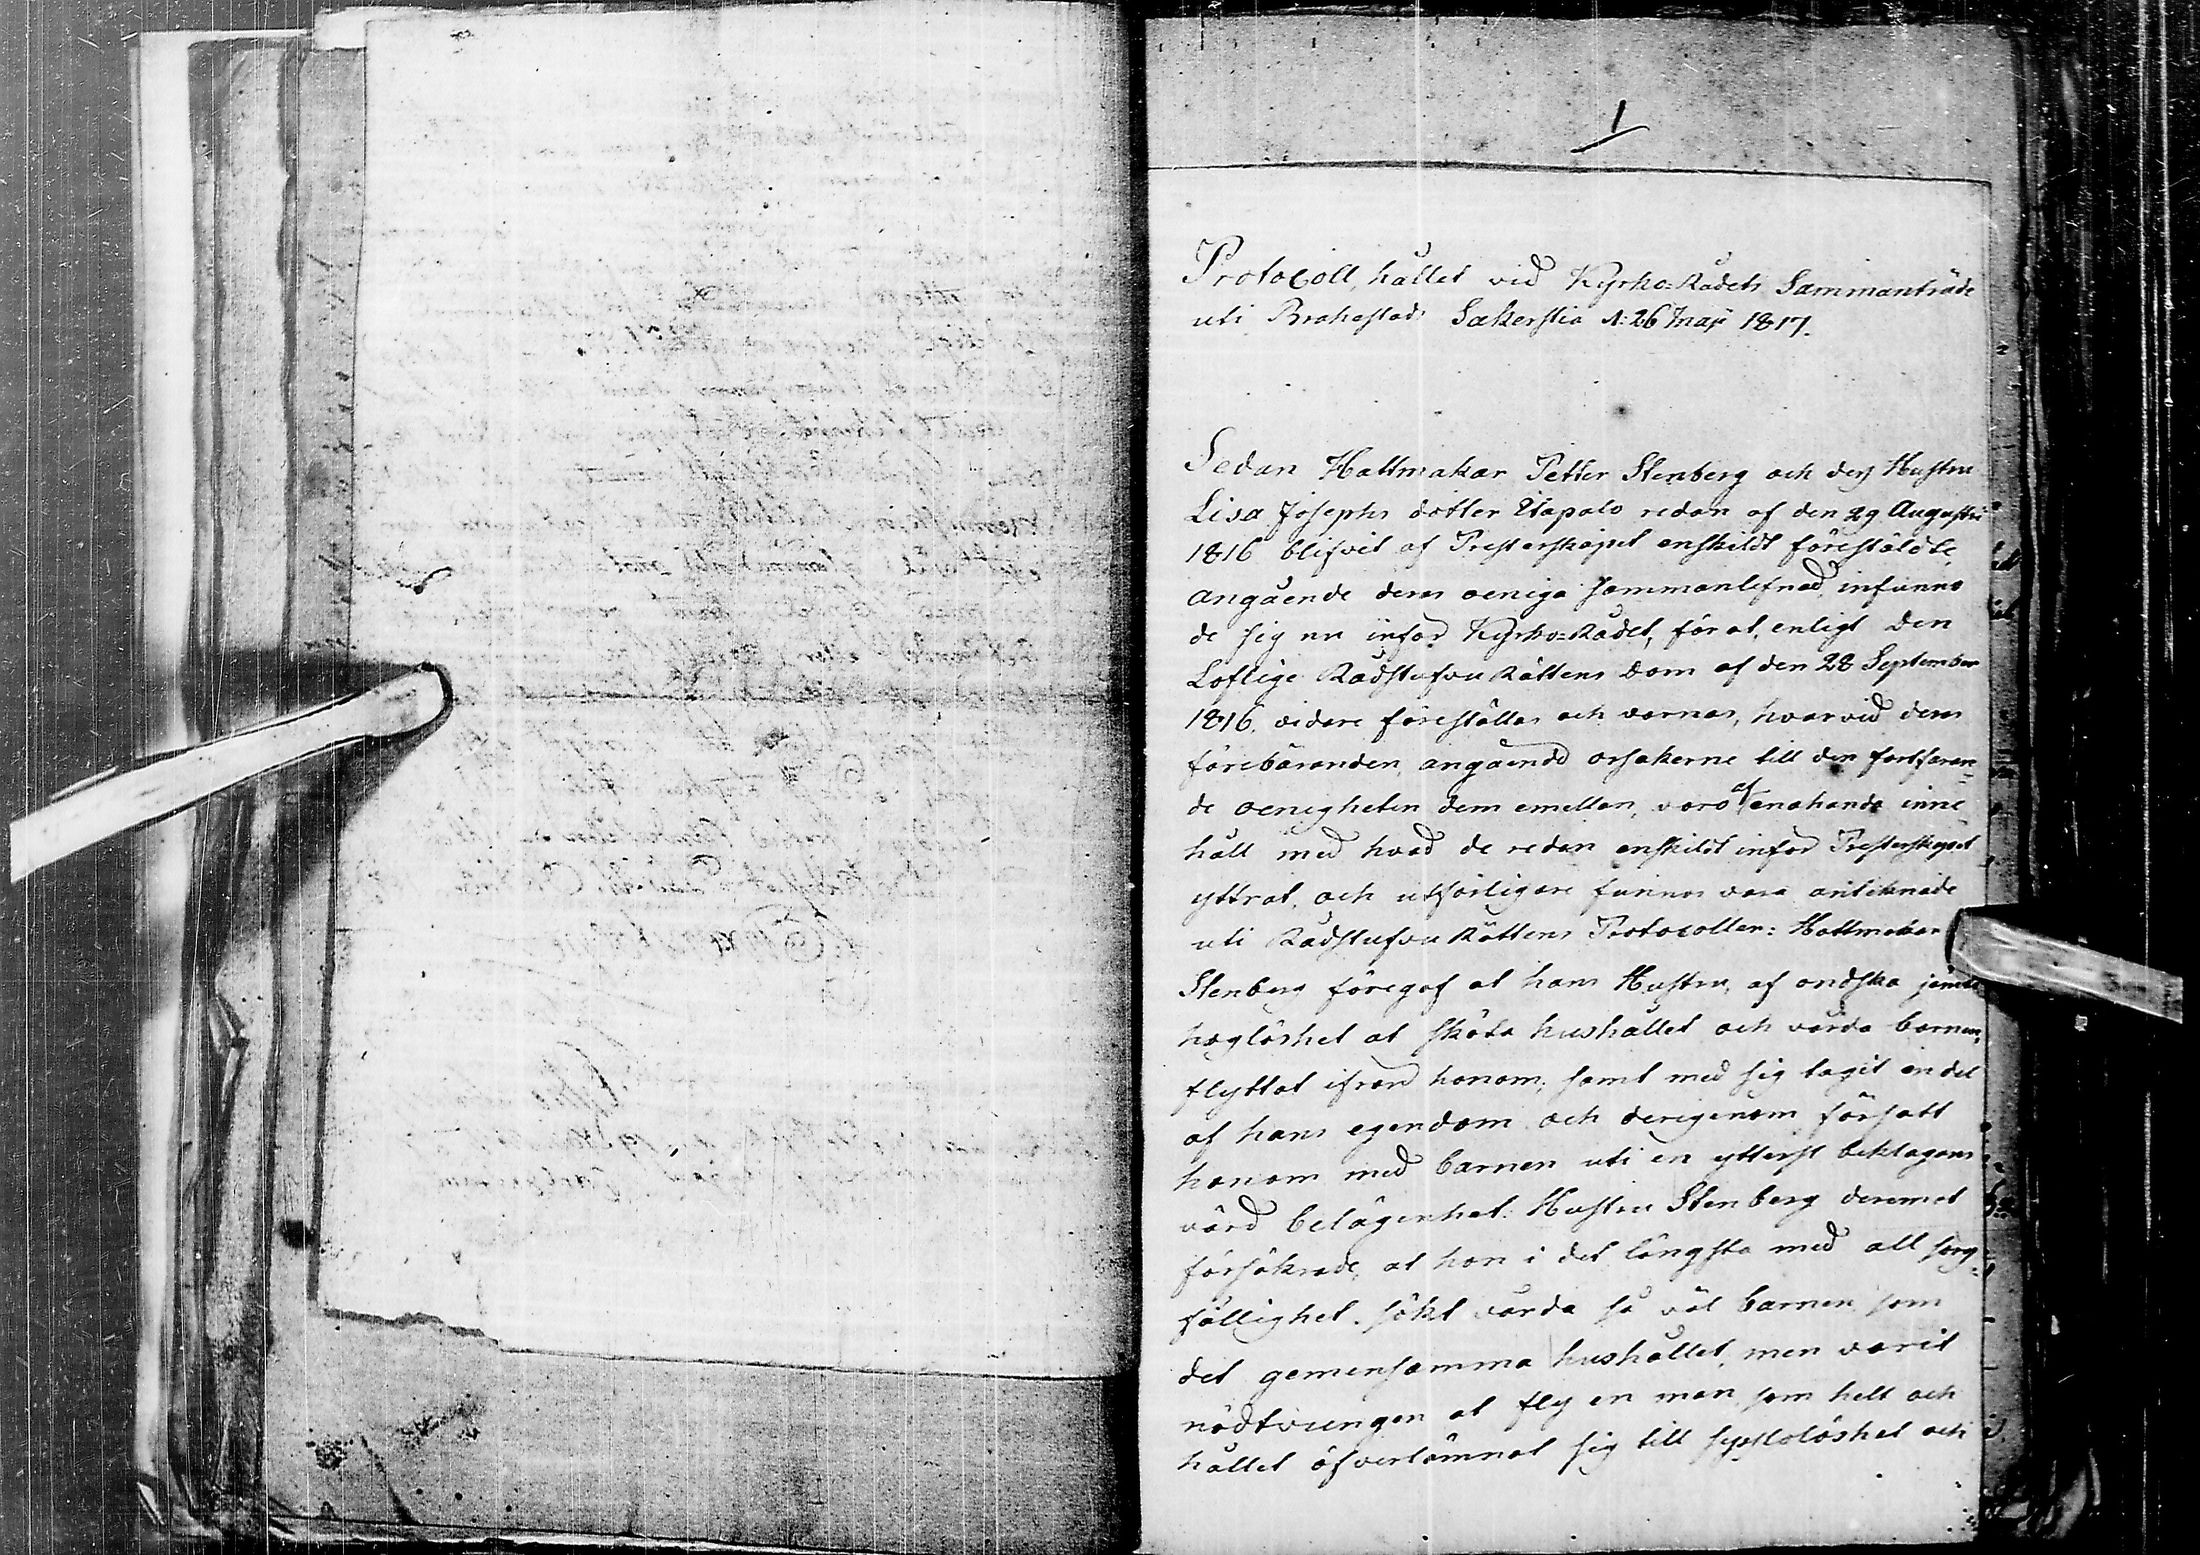 1
Protocoll, hållet vid Kyrko-Rådets Sammanträde
uti Brahestads Sakerstia d: 26 Maji 1817.
Sedan Hattmakar Petter Stenberg och dess Hustru
Lisa Josephs dotter Etapalo redan af den 29 Augusti
1816 blifvit af Presterskapet enskildt förestäldte,
angående deras oeniga sammanlefnad, infunno
de sig nu infor Kyrko-Rådet, för at, enligt Den
Loflige RådstufvuRättens Dom af den 28 September
1816. vidare föreställas och varnas, hvarvid deras
förebäranden, angående orsakerne till den fortfaran-
de oenigheten dem emellan, voro af enahanda inne-
håll med hvad de redan enskildt inför Presterskapet
yttrat, och utförligare finnas vara antecknade
uti RådstufvuRättens Protocoller: Hattmakar
Stenberg föregaf at hans Hustru, af ondska jämte
hoglöshet at sköta hushållet och vårda barnen,
flyttat ifrån honom, samt med sig tagit en del
af hans egendom och derigenom försatt
honom med barnen uti en ytterst beklagans-
värd belägenhet: Hustru Stenberg deremot
försäkrade, at hon i det längsta med all sorg-
fällighet sökt vårda så väl barnen som
det gemensamma hushållet, men varit
nödtvungen at fly en man, som helt och
hållet öfverlämnat sig till sysslolöshet och